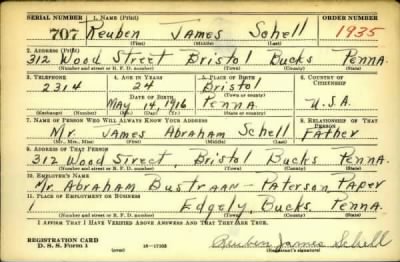 SERIAL NUMBER 1. NAME (Print) ORDER NUMBER
707 Reuben James Schell 1935
(First) (Middle) (Last)
2. ADDRESS (Print)
312 Wood Street Bristol Bucks Penna.
(Number and street or R. F. D. number) (Town) (County) (State)
3. TELEPHONE 4. AGE IN YEARS 5. PLACE OF BIRTH 6. COUNTRY OF CITIZENSHIP
2314 24 Bristol
DATE OF BIRTH (Town or county)
May 14, 1916 Penna. U.S.A.
(Exchange) (Number) (Mo.) (Day) (Yr.) (State or country)
7. NAME OF PERSON WHO WILL ALWAYS KNOW YOUR ADDRESS 8. RELATIONSHIP OF THAT PERSON
Mr. James Abraham Schell Father
(Mr., Mrs., Miss) (First) (Middle) (Last)
9. ADDRESS OF THAT PERSON
312 Wood Street, Bristol Bucks Penna.
(Number and street or R. F. D. number) (Town) (County) (State)
10. EMPLOYER'S NAME
Mr. Abraham Bustraan - Paterson Paper
11. PLACE OF EMPLOYMENT OR BUSINESS
Edgely, Bucks. Penna.
(Number and street or R. F. D. number) (Town) (County) (State)
I AFFIRM THAT I HAVE VERIFIED ABOVE ANSWERS AND THAT THEY ARE TRUE.
REGISTRATION CARD
D. S. S. Form 1 (over) 16-17105 Reuben James Schell
(Registrant's signature)